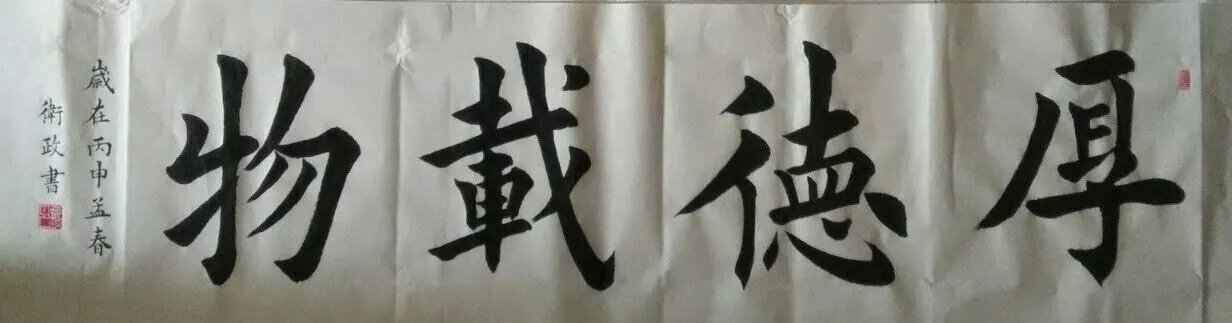 厚德載物
歲在丙申孟春
衛政書